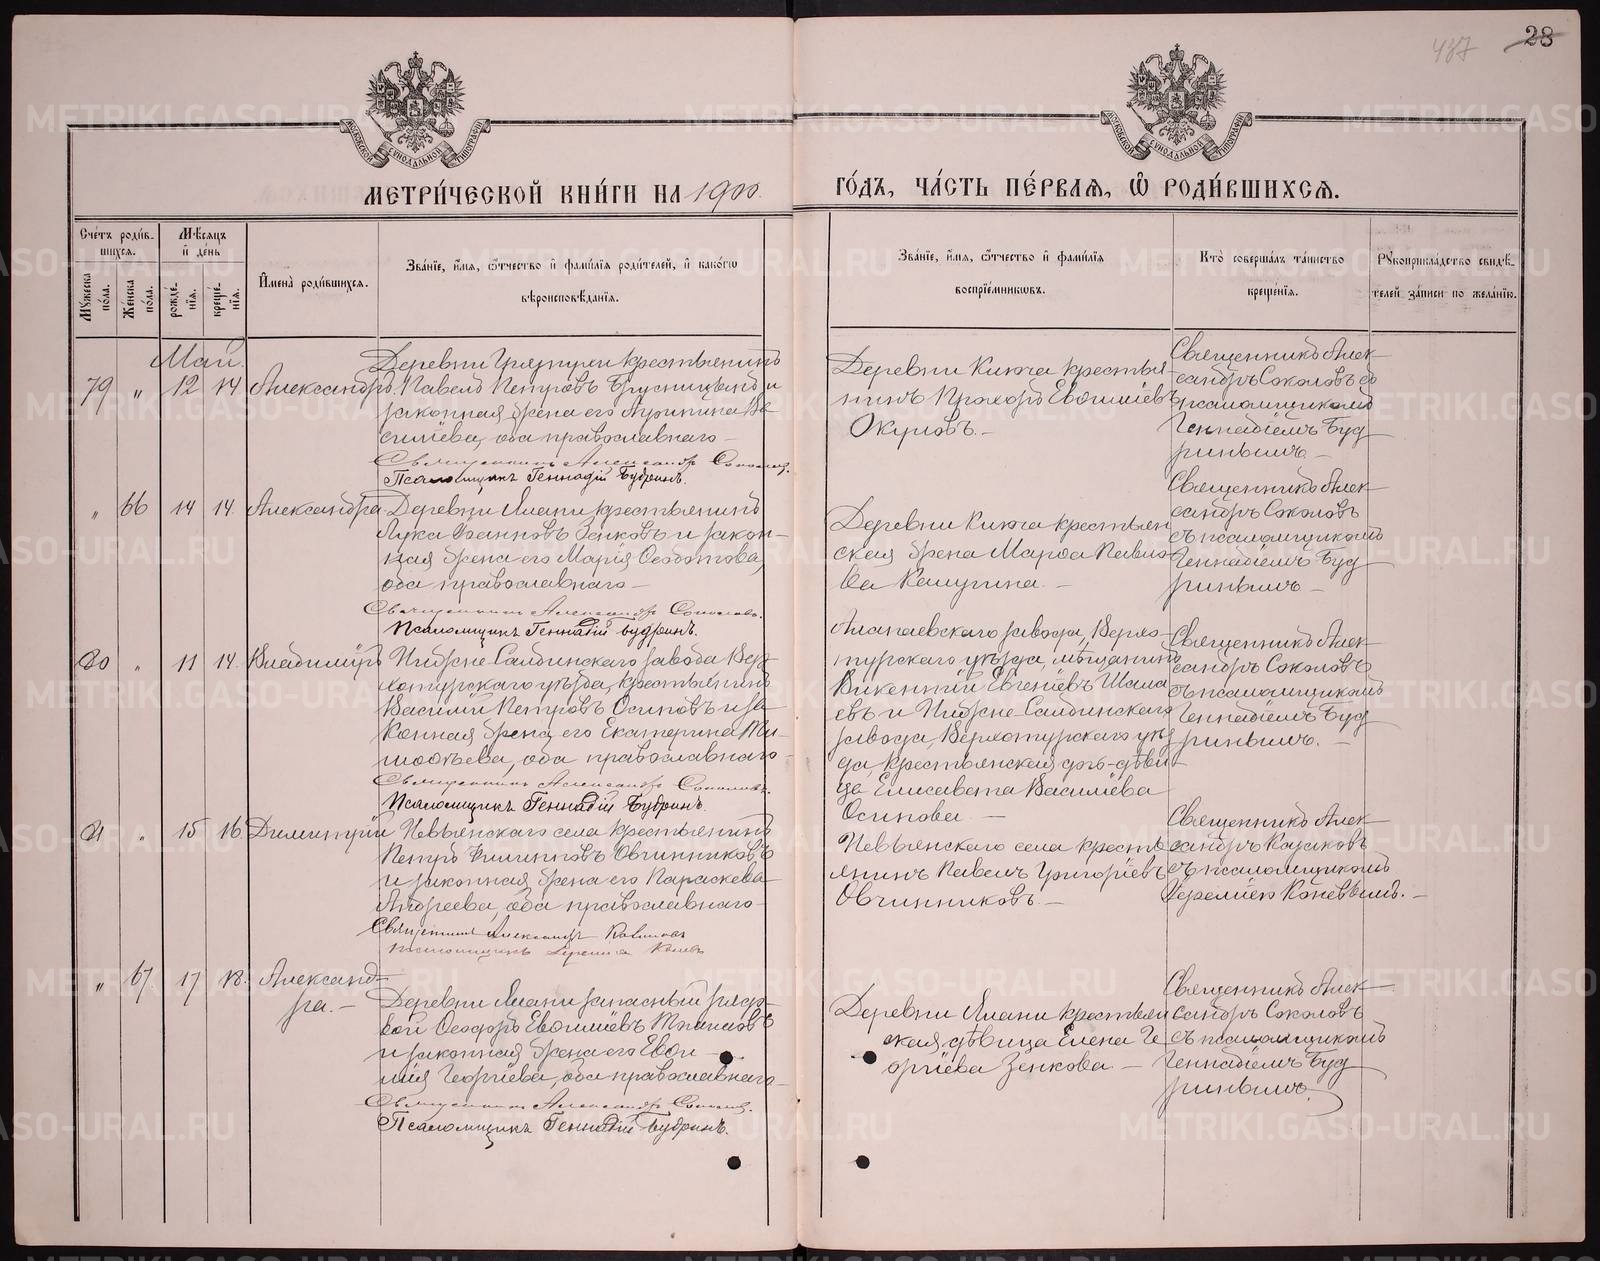 28
МОСКОВСКОЙ СѴНОДАЛЬНОЙ ТИПОГРАФІИ
МОСКОВСКОЙ СѴНОДАЛЬНОЙ ТИПОГРАФІИ
МЕТРИ́ЧЕСКОЙ КНИ́ГИ НА 1900.
ГО́ДЪ, ЧА́СТЬ ПЕ́РВАЯ, Ѽ РОДИ́ВШИХСЯ.
Сче́тъ роди́в-
шихся.
Мѣ́сяцъ
и҆ де́нь
Му́жеска по́ла.
Же́нска по́ла.
рожде́-
нїя.
креще́-
нїя.
И҆мена̀ роди́вшихся.
Зва́нїе, и҆́мя, ѻ҆́тчество и҆ фами́лїя роди́телей, и҆ како́гѡ
вѣроисповѣ́данїя.
Зва́нїе, и҆́мя, ѻ҆́тчество и҆ фами́лїя
воспрїе́мникѡвъ.
Кто̀ соверша́лъ та́инство
креще́нїя.
Рꙋкоприкла́дство свидѣ́-
телей за́писи по жела́нїю.
Май.
79 " 12 14 Александръ.
Деревни крестьянинъ
Павелъ Петровъ и
законная жена его Ва
силіева, оба православнаго
Священникъ Александр Соколов.
Псаломщикъ Геннадій Будринъ.
Деревни Ключа крестья
нинъ Прохоръ Евфиміевъ
Окуловъ.
Священникъ Алек
сандръ Соколовъ съ
псаломщикомъ
Геннадіемъ Буд
ринымъ.
" 66 14 14 Александра
Деревни Ялани крестьянинъ
Лука Іоанновъ Зенковъ и закон-
ная жена его Марія Ѳеодотова,
оба православнаго
Священникъ Александр Соколовъ.
Псаломщикъ Геннадій Будринъ.
Деревни Ключа крестьян
ская жена Марѳа Павло
ва Калугина.
Священникъ Алек
сандръ Соколовъ
съ псаломщикомъ
Геннадіемъ Буд
ринымъ
80 " 11 14 Владиміръ
Нижне-Салдинскаго завода Вер-
хотурскаго уѣзда, крестьянинъ
Василій Петровъ Осиповъ и за
конная жена его Екатерина Ти
моѳѣева, оба православнаго
Священникъ Александр Соколовъ.
Псаломщикъ Геннадій Будринъ.
Алапаевскаго завода, Верхо-
турскаго уѣзда, мѣщанинъ
Викентій Евгеніевъ Шала
евъ и Нижне-Салдинскаго
завода, Верхотурскаго уѣз
да, крестьянская дочь-дѣви
ца Елисавета Василіева
Осипова
Священникъ Алек
сандръ Соколовъ
съ псаломщикомъ
Геннадіемъ Буд
ринымъ.
81 " 15 16 Димитрій
Невьянскаго села крестьянинъ
Петръ Филипповъ Овчинниковъ
и законная жена его Параскева
Андреева, оба православнаго
Священникъ Александръ
псаломщикъ
Невьянскаго села кресть
янинъ Павелъ Григоріевъ
Овчинниковъ.
Священникъ Алек
сандръ
съ псаломщикомъ
" 67 17 18 Александ-
ра.
Деревни Ялани запасный рядо-
вой Ѳеодоръ Евфиміевъ
и законная жена его Евфи
мія Георгіева, оба православнаго
Священникъ Александр Соколов.
Псаломщикъ Геннадій Будринъ.
Деревни Ялани крестьян
ская дѣвица Елена Ге
оргіева Зенкова
Священникъ Алек
сандръ Соколовъ
съ псаломщикомъ
Геннадіемъ Буд
ринымъ.
METRIKI.GASO-URAL.RU